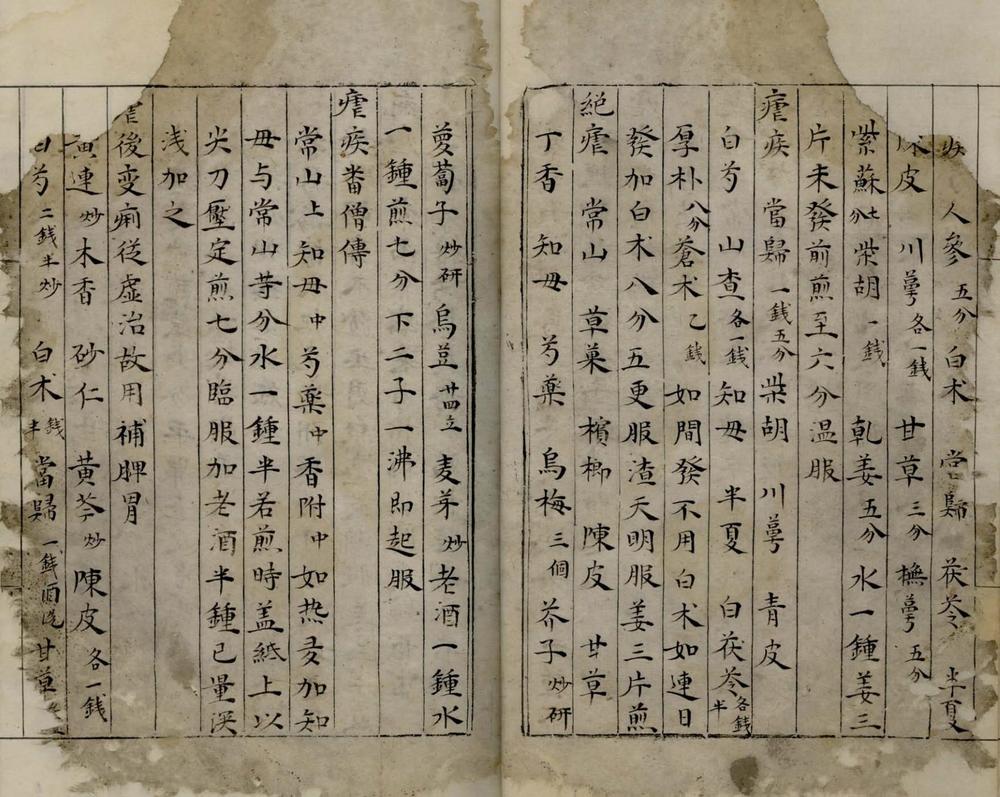 疾 人參五分 白朮 當歸 茯苓 半夏
皮 川芎各一錢 甘草三分 撫芎五分
紫蘇七分 柴胡一錢 乹姜五分 水一鍾姜三
片未發前煎至六分温服
瘧疾 當歸一錢五分 柴胡 川芎 青皮
白芍 山查各一錢 知母 半夏 白茯苓各錢半
厚朴八分 蒼朮乙錢 如間發不用白朮如連日
發加白朮八分五更服渣天明服姜三片煎
絕瘧 常山 草菓 檳榔 陳皮 甘草
丁香 知母 芍藥 烏梅三個 芥子炒研
蔓蔔子炒研 烏荳廿四立 麦芽炒 老酒一鍾水
一鍾煎七分下二子一沸即起服
瘧疾畨僧傳
常山上 知母中 芍藥中 香附中 如热多加知
母与常山䒭分水一鍾半若煎時盖紙上以
尖刀壓定煎七分臨服加老酒半鍾已量深
浅加之
後变痢従虛治故用補脾胃
黄連炒 木香 砂仁 黄芩炒 陳皮各一錢
白芍二錢半炒 白朮錢半 當歸一錢酒洗 甘草